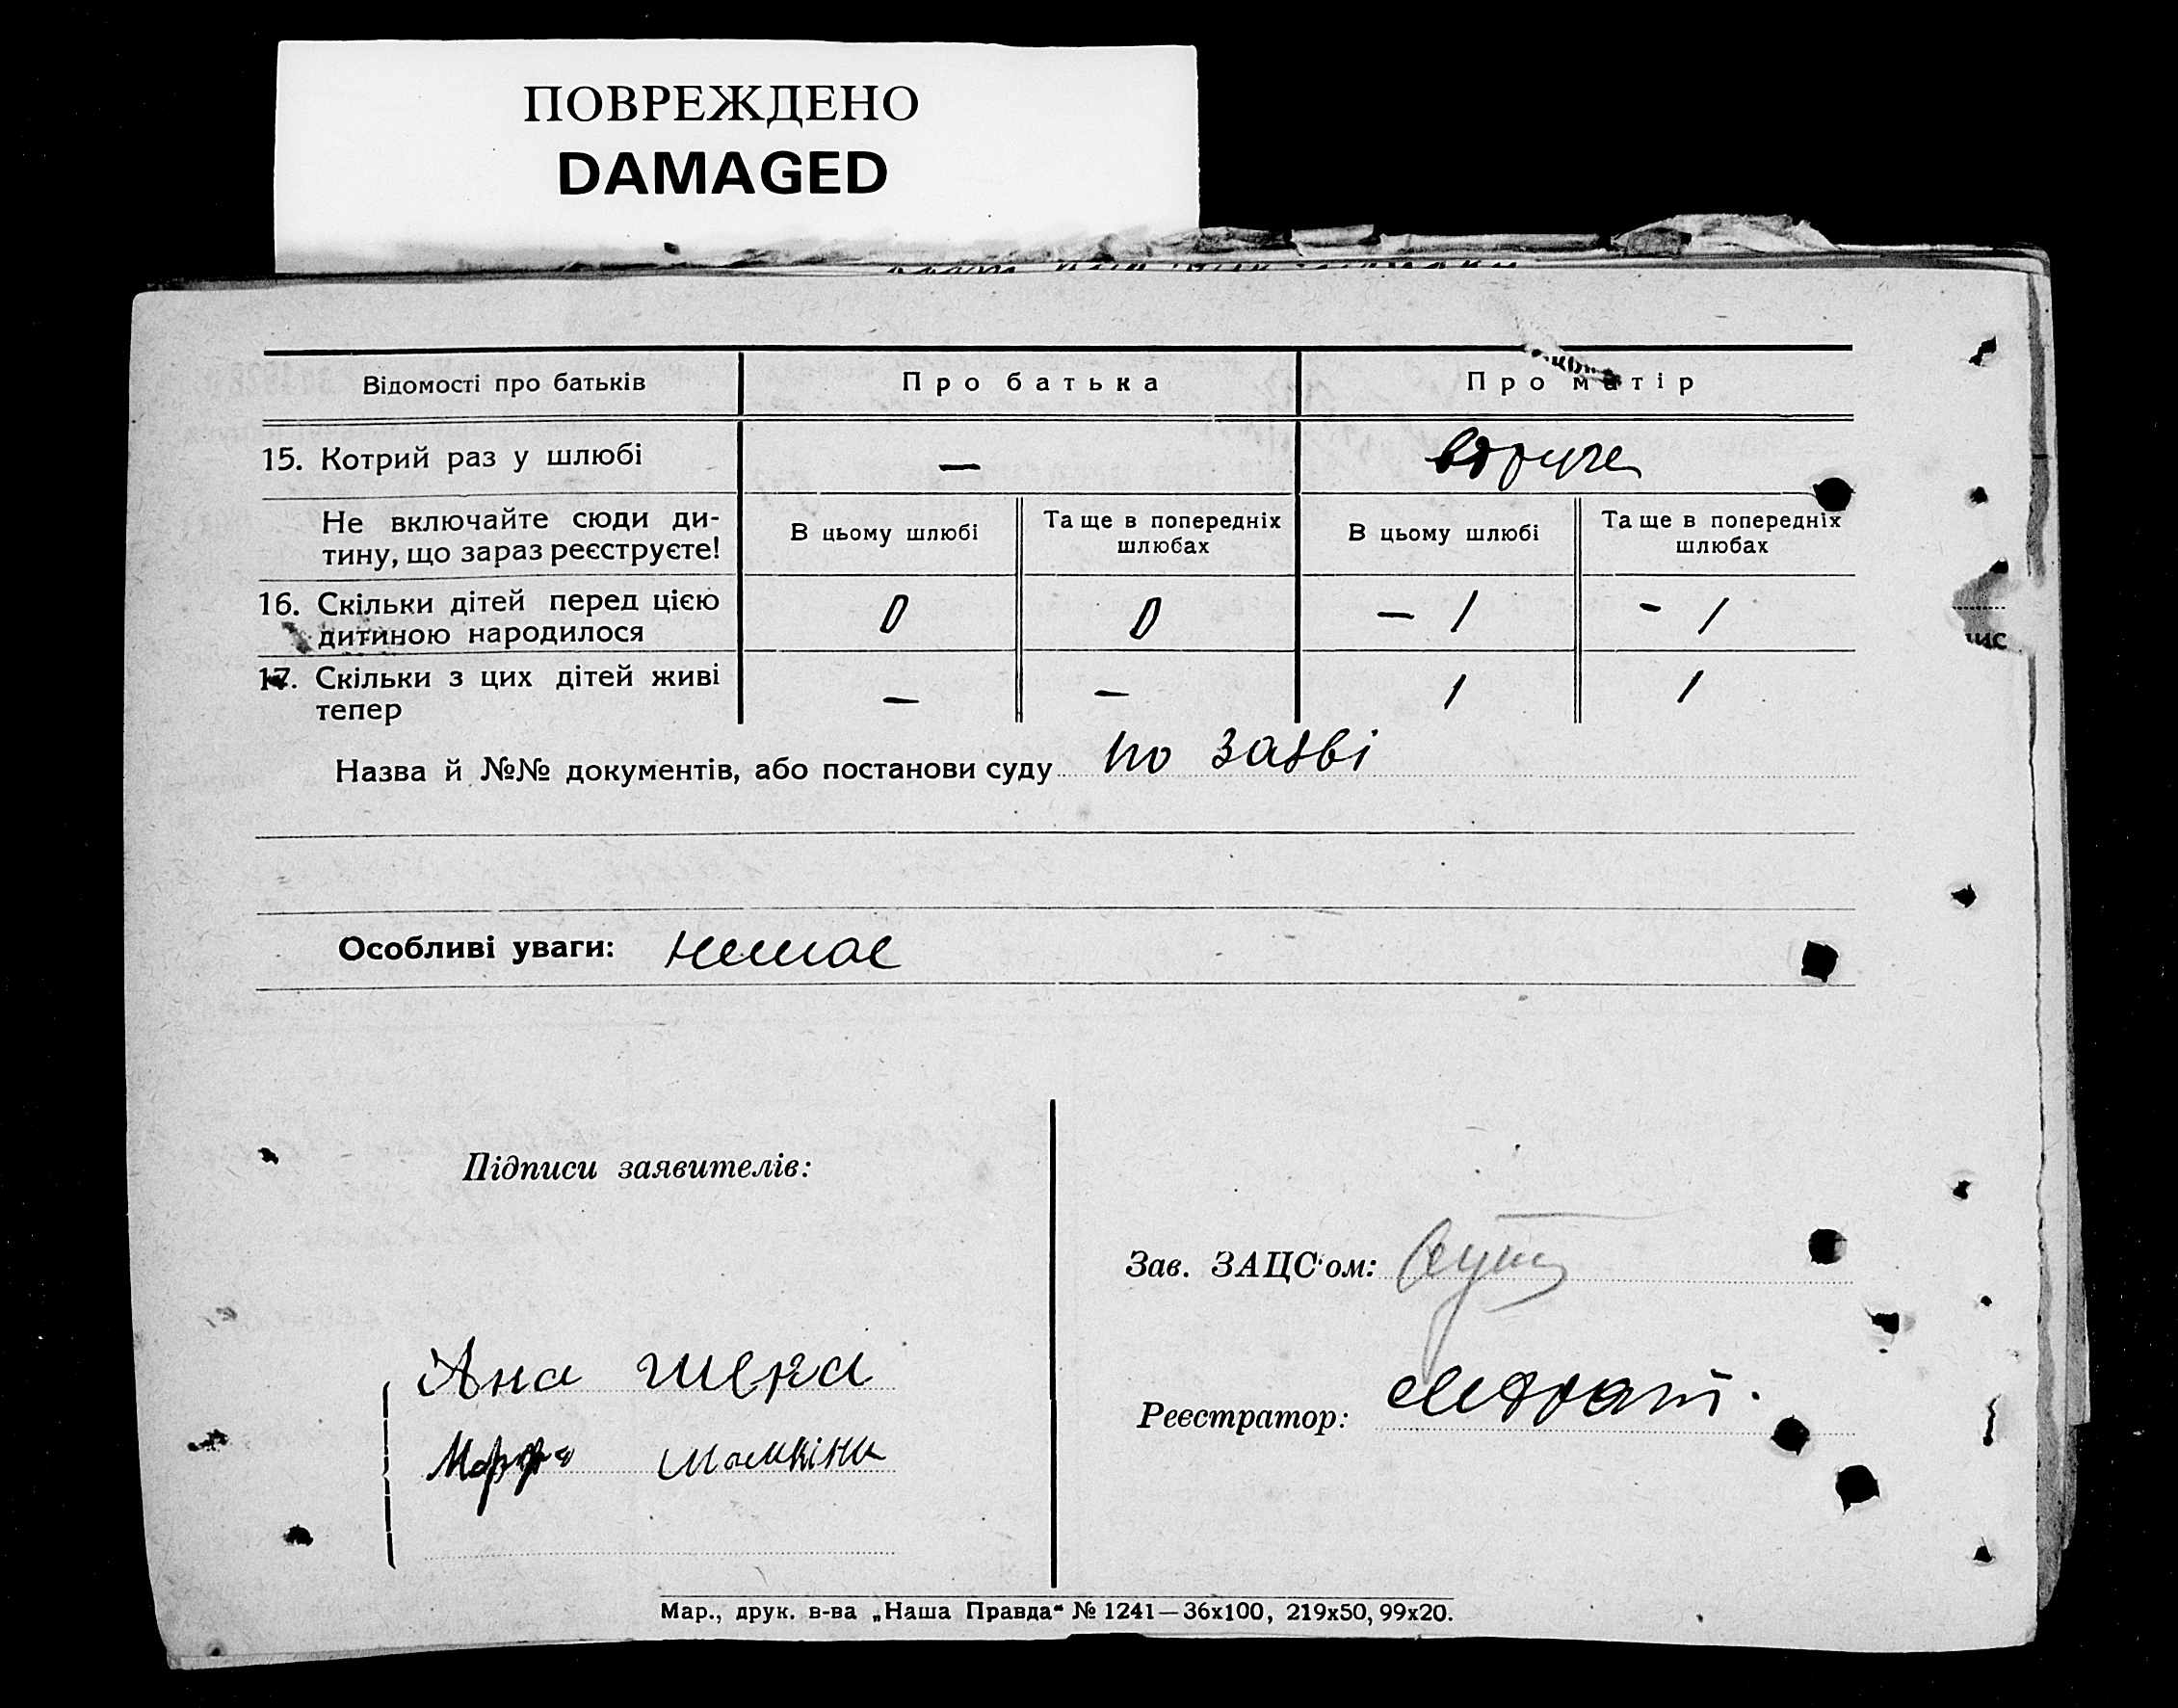 ПОВРЕЖДЕНО
DAMAGED
Відомості про батьків
Про батька
Про матір
15. Котрий раз у шлюбі
—
вдруге
Не включайте сюди ди-
тину, що зараз реєструєте!
В цьому шлюбі
Та ще в попередніх
шлюбах
В цьому шлюбі
Та ще в попередніх
шлюбах
16. Скільки дітей перед цією
дитиною народилося
0
0
— 1
- 1
17. Скільки з цих дітей живі
тепер
—
—
1
1
Назва й №№ документів, або постанови суду по заяві
Особливі уваги: немає
Підписи заявителів:
Зав. ЗАЦС'ом:
Ана
Реєстратор:
Марфа
Мар., друк. в-ва „Наша Правда“ № 1241—36х100, 219х50, 99х20.